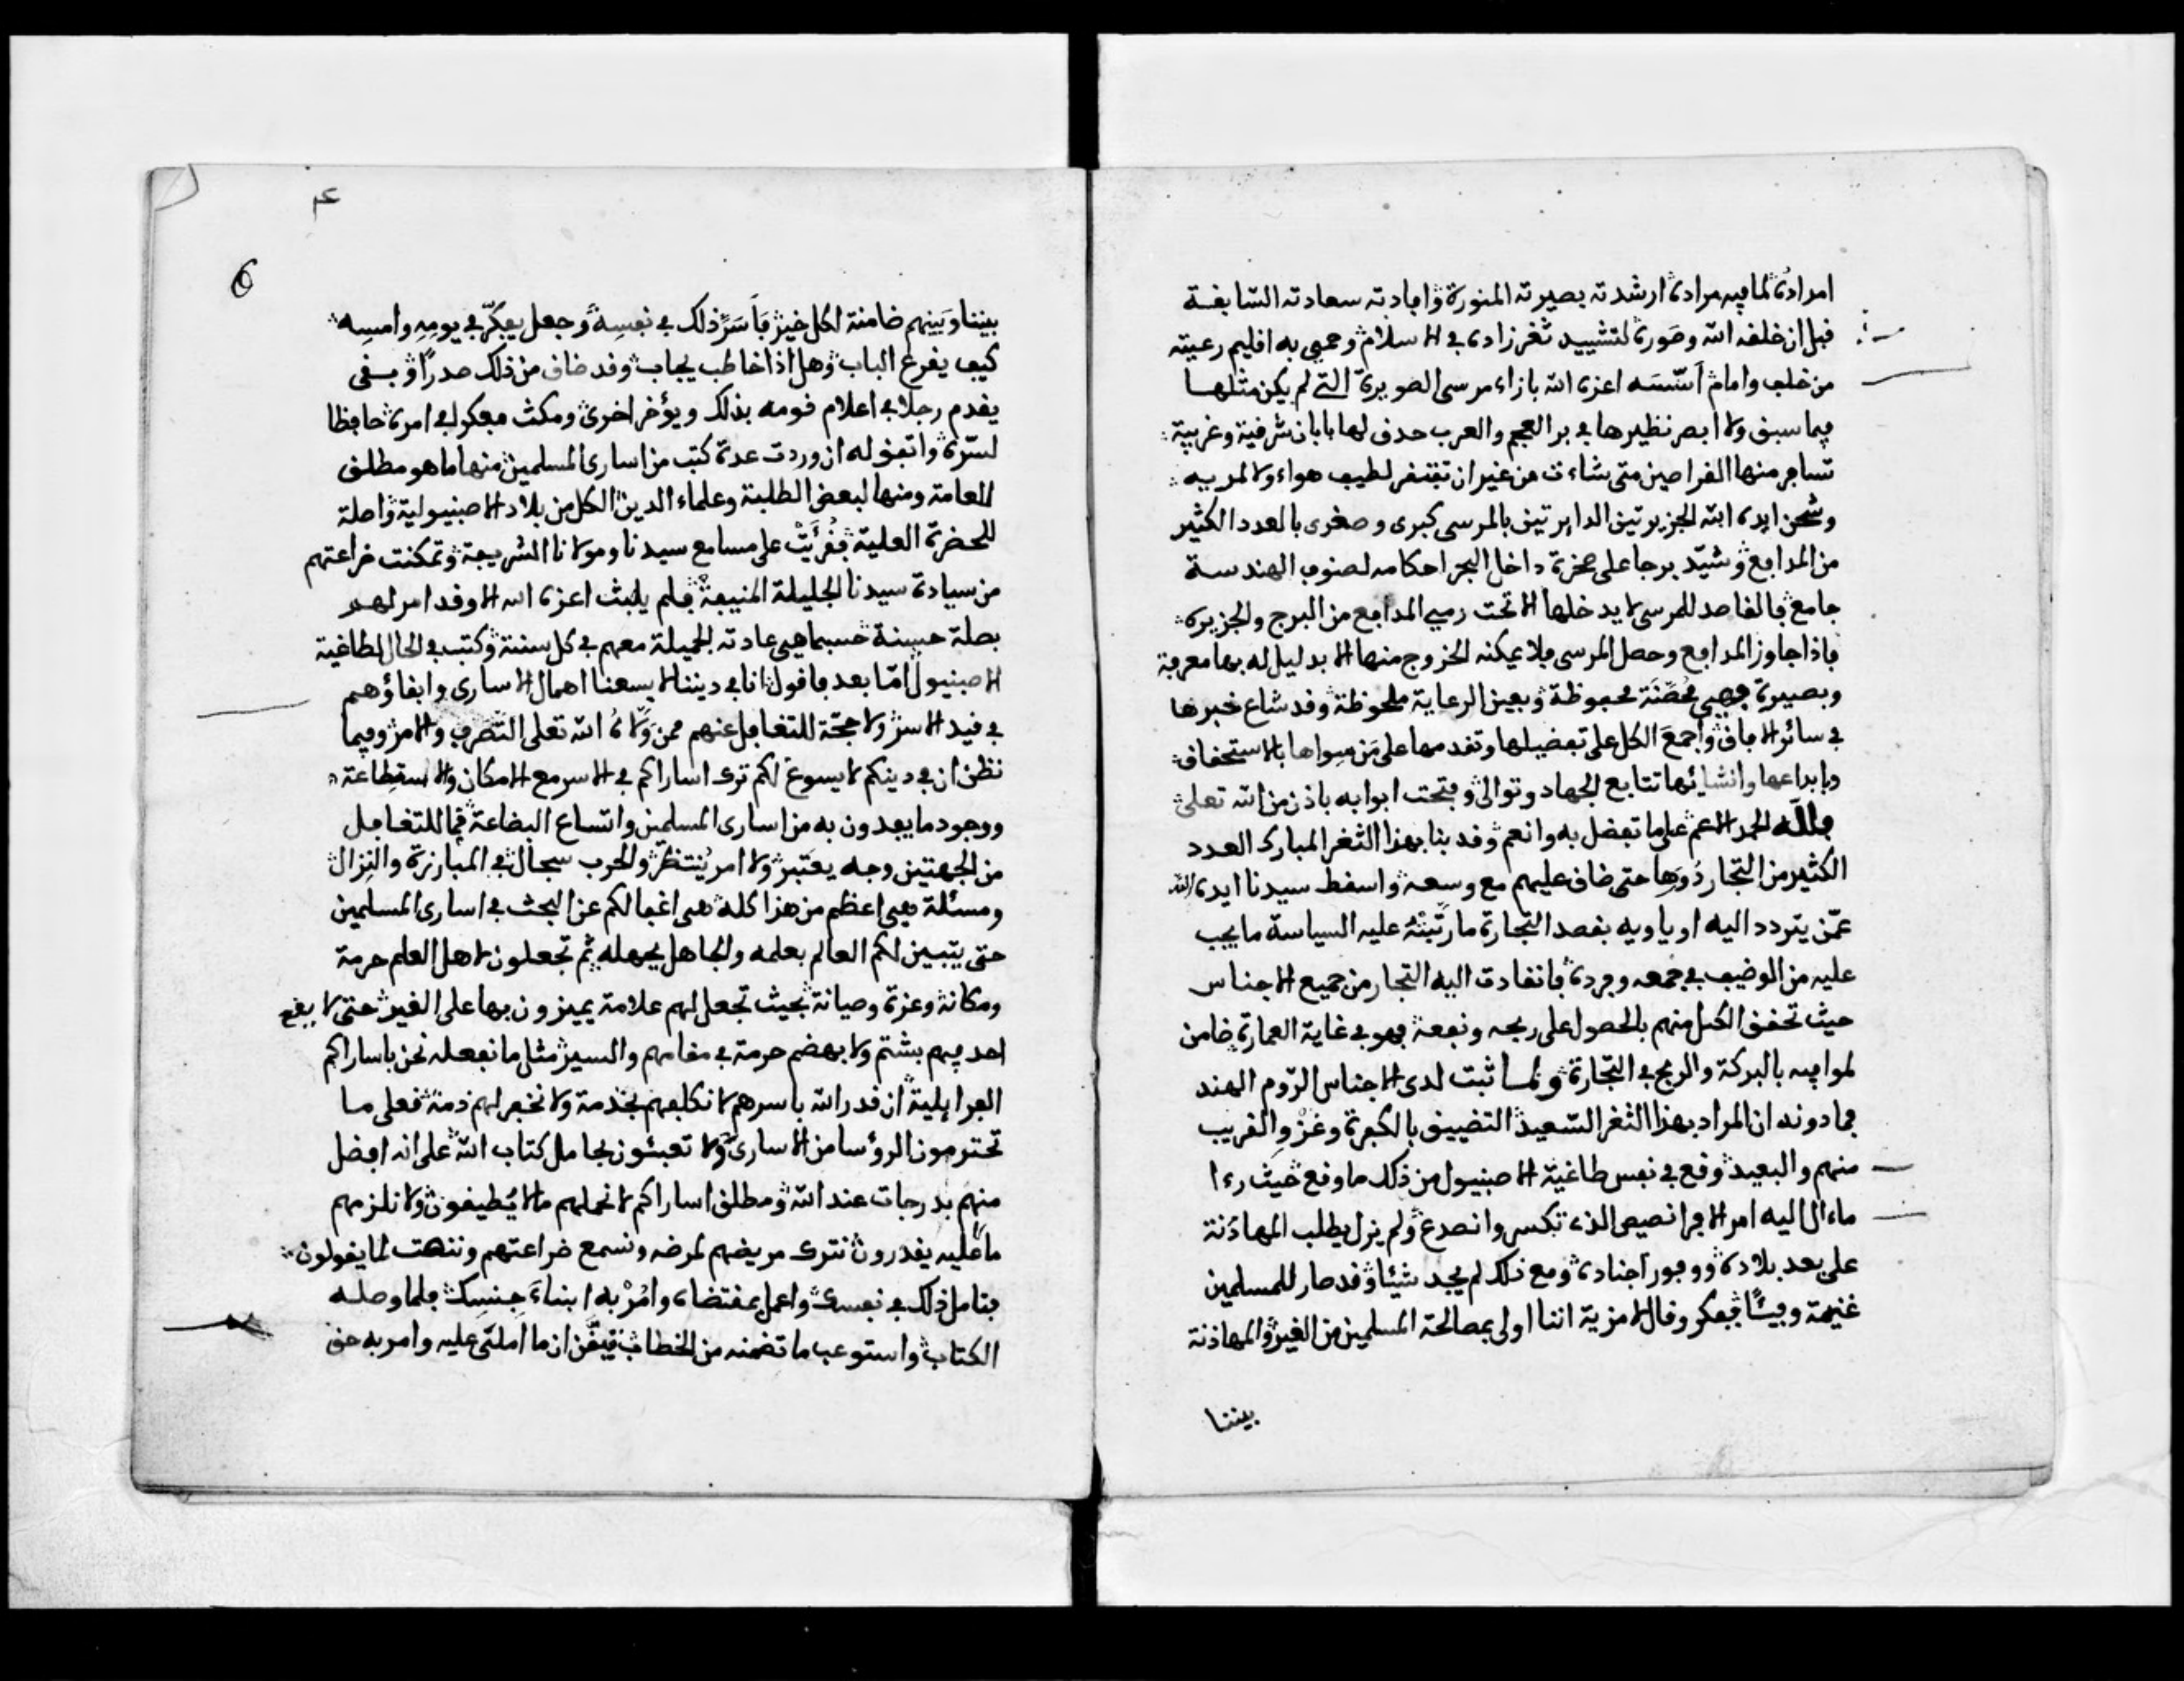 امراده لما فيه مراده ارشدته بصيرته المنورة وافادته سعادته السابقة
قبل ان خلقه الله وصوره لتشييد ثغر زاده في الاسلام وحمى به اقليم رعيته
من خلف وامام أسّسَه اعزه الله بازاء مرسى الصويرة التي لم يكن مثلها
فيما سبق ولا ابصر نظيرها في بر العجم والعرب حدق لها بابان شرقية وغربية
تسافر منها القراصين متى شاءت من غير ان تفتقر لطيب هواء ولا لمرييه
وشحن ايده الله الجزيرتين الدايرتين بالمرسى كبرى وصغرى بالعدد الكثير
من المدافع وشيّد برجا على صخرة داخل البحر احكامه لصنوف الهندسة
جامع فالقاصد للمرسى لا يدخلها الا تحت رمي المدافع من البرج والجزيرة
فاذا جاوز المدافع وحصل المرسى فلا يمكنه الخروج منها الا بدليل له بها معرفة
وبصيرة فهي مُحَصَّنَة محفوظة وبعين الرعاية ملحوظة وقد شاع خبرها
في سائر الافاق واجمعَ الكل على تفضيلها وتقدمها على مَن سواها بالاستحقاق
وبابداعها وانشائها تتابع الجهاد وتوالى وفتحت ابوابه باذن من الله تعلى
فلله الحمد الاعم على ما تفضل به وانعم وقد بنا بهذا الثغر المبارك العدد
الكثير من التجار دُورَها حتى ضاق عليهم مع وسعه واسقط سيدنا ايده الله
عمّن يتردد اليه او ياويه بقصد التجارة ما رتّبتْهُ عليه السياسة ما يجب
عليه من الوضيف في جمعه وفرده فانقادت اليه التجار من جميع الاجناس
حيث تحقق الكل منهم بالحصول على ربحه ونفعه فهو في غاية العمارة ضامن
لموافيه بالبركة والربح في التجارة ولما ثبت لدى الاجناس الرّوم الهند
فمادونه ان المراد بهذا الثغر السّعيد التضييق بالكفرة وغزْو القريب
منهم والبعيد وقع في نفس طاغية الاصنيول من ذلك ما وقع حيث رءا
ماءال اليه امر الافرانصيص الذي تكسر وانصدع ولم يزل يطلب المهاذنة
على بعد بلاده ووفور اجناده ومع ذلك لم يجد شيئا وقد صار للمسلمين
غنيمة وفيئًا ففكر وقال لا مزية اننا اولى بمصالحة المسلمين من الغير والمهاذنة
بيننا
عم
6
بيننا وَبَينهم ضامنة لكل خير فأسَرَّ ذلك في نفسِه وجعل يفكّر في يومِهِ وامسِه
كيف يقرع الباب وهل اذا خاطب يجاب وقد ضاق من ذلك صدرًا وبقى
يقدم رجلا في اعلام قومه بذلك ويؤخر اخرى ومكث مفكرا في امره حافظا
لسّره واتفق له ان وردت عدة كتب من اسارى المسلمين منها ما هو مطلق
للعامة ومنها لبعض الطلبة وعلماء الدين الكل من بلاد الاصبنيولية واصلة
للحضرة العلية فقُرِئَتْ على مسامع سيدنا ومولانا الشريفة وتمكنت ضراعتهم
من سيادة سيدنا الجليلة المنيفة فلم يلبث اعزه الله الا وقد امر لهم
بصلة حسنة حسبما هي عادته الجميلة معهم في كل سنة وكتب في الحال لطاغية
الاصبنيول امّا بعد فاقول انا في ديننا لا يسعنا اهمال الاسارى وابقاؤهم
في قيد الاسر ولا حجّة للتغافل عنهم ممن وَلَّاهُ الله تعلى التّصَرف والامر وفيما
نظن ان في دينكم لا يسوغ لكم ترك اساراكم في الاسر مع الامكان والاستطاعة
ووجود ما يفدون به من اسارى المسلمين واتساع البضاعة فما للتغافل
من الجهتين وجه يعتبر ولا امر يُنتظر والحرب سجال في المبارزة والنِزال
ومسئلة هي اعظم من هذا كله هي اغفالكم عن البحث في اسارى المسلمين
حتى يتبين لكم العالم بعلمه والجاهل بجهله ثم تجعلون لاهل العلم حرمة
ومكانة وعزة وصيانة بحيث تجعل لهم علامة يميزون بها على الغير حتى لا يقع
احد فيهم بشتم ولا بهضم حرمة في مقامهم والسير مثل ما نفعله نحن باساراكم
الفرايلية ان قدر الله باسرهم لا نكلفهم بخدمة ولا نخفر لهم ذمة فعلى ما
تحترمون الرؤسا من الاسارى وَلا تعبئون بحامل كتاب الله على انه افضل
منهم بدرجات عند الله ومطلق اساراكم لا نحملهم مالا يُطيقون ولا نلزمهم
ما عليه يقدرون نترك مريضهم لمرضه ونسمع ضراعتهم وننهت لما يقولون
فتامل ذلك في نفسك واعمل بمقتضاه وامُرْ به ابناءَ جِنسِك فلما وصله
الكتاب واستوعب ما تضمنه من الخطاب تيقّن ان ما املى عليه وامر به حق